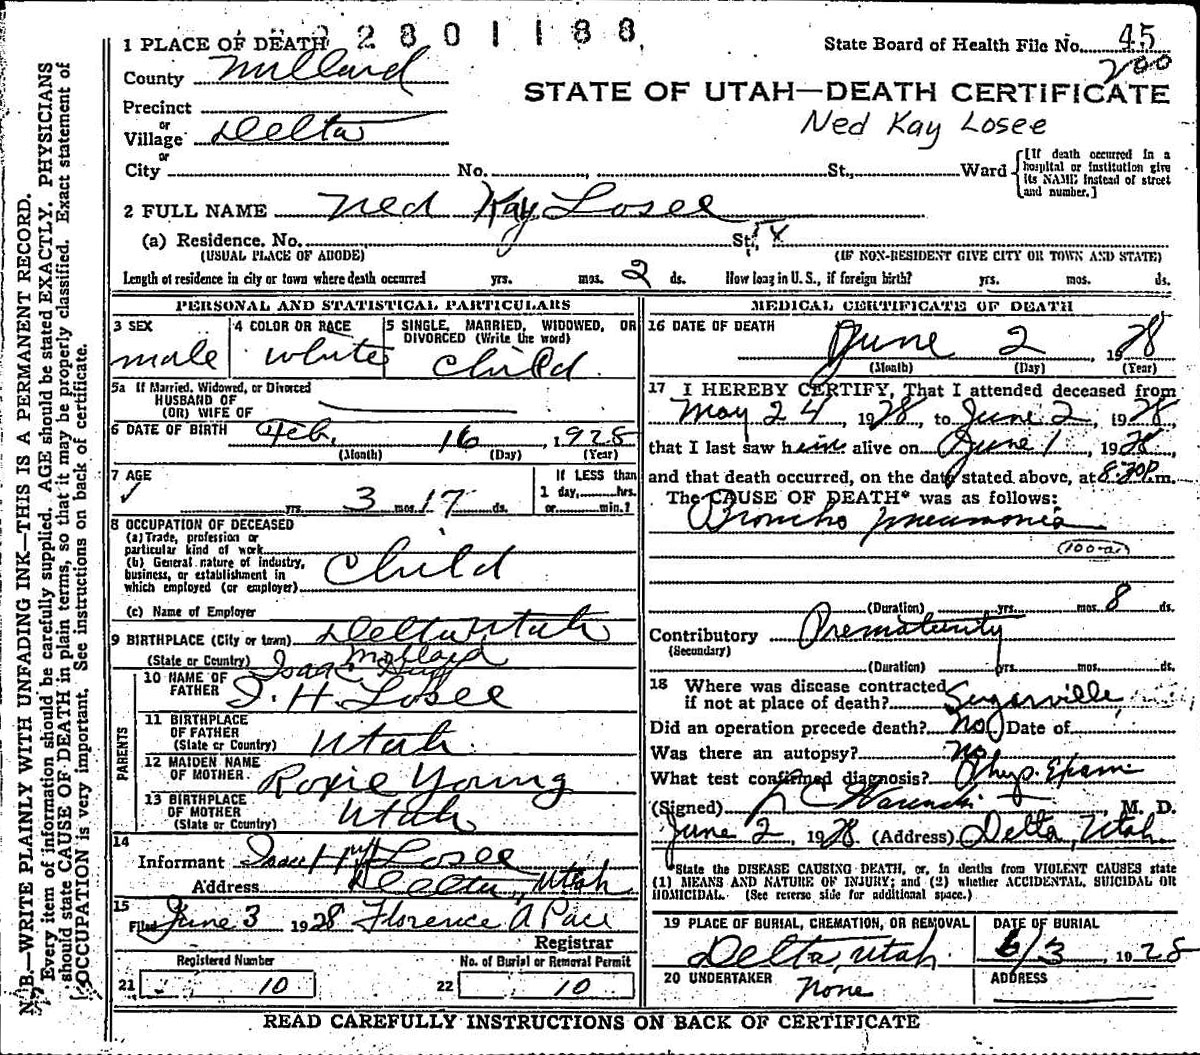 2 8 0 1 1 8 8
State Board of Health File No. 45
200
1 PLACE OF DEATH
County Millard
STATE OF UTAH—DEATH CERTIFICATE
Ned Kay Losee
Precinct
or
Village Delta
or
City No. , St., Ward
[If death occurred in a hospital or institution give its NAME instead of street and number.]
2 FULL NAME Ned Kay Losee
(a) Residence. No. St.
(USUAL PLACE OF ABODE) (IF NON-RESIDENT GIVE CITY OR TOWN AND STATE)
Length of residence in city or town where death occurred yrs. mos. 2 ds. How long in U.S., if foreign birth? yrs. mos. ds.
PERSONAL AND STATISTICAL PARTICULARS
3 SEX
male
4 COLOR OR RACE
white
5 SINGLE, MARRIED, WIDOWED, OR
DIVORCED (Write the word)
child
5a If Married, Widowed, or Divorced
HUSBAND OF
(OR) WIFE OF
6 DATE OF BIRTH Feb. 16, 1928
(Month) (Day) (Year)
7 AGE
yrs. 3 mos. 17 ds.
If LESS than
1 day, hrs.
or min.?
8 OCCUPATION OF DECEASED
(a) Trade, profession or
particular kind of work
(b) General nature of industry,
business, or establishment in
which employed (or employer) Child
(c) Name of Employer
9 BIRTHPLACE (City or town) Delta Utah
(State or Country) Millard
PARENTS
10 NAME OF
FATHER I. H. Losee
11 BIRTHPLACE
OF FATHER
(State or Country) Utah
12 MAIDEN NAME
OF MOTHER Roxie Young
13 BIRTHPLACE
OF MOTHER
(State or Country) Utah
14
Informant Isaac H Losee
Address Delta, Utah
15
Filed June 3 1928 Florence A Pace
Registrar
Registered Number No. of Burial or Removal Permit
21 10 22 10
MEDICAL CERTIFICATE OF DEATH
16 DATE OF DEATH
June 2, 1928
(Month) (Day) (Year)
17 I HEREBY CERTIFY, That I attended deceased from
May 24, 1928 to June 2, 1928
that I last saw him alive on June 1, 1928,
and that death occurred, on the date stated above, at 8:30P.m.
The CAUSE OF DEATH* was as follows:
Broncho pneumonia
(100-a)
(Duration) yrs. mos. 8 ds.
Contributory Prematurity
(Secondary)
(Duration) yrs. mos. ds.
18 Where was disease contracted
if not at place of death? Sugarville,
Did an operation precede death? No Date of
Was there an autopsy? No
What test confirmed diagnosis? Phys. Exam
(Signed) M. D.
June 2, 1928. (Address) Delta, Utah
*State the DISEASE CAUSING DEATH, or, in deaths from VIOLENT CAUSES state
(1) MEANS AND NATURE OF INJURY; and (2) whether ACCIDENTAL, SUICIDAL OR
HOMICIDAL. (See reverse side for additional space.)
19 PLACE OF BURIAL, CREMATION, OR REMOVAL
Delta, Utah.
DATE OF BURIAL
6/3, 1928
20 UNDERTAKER
None
ADDRESS
READ CAREFULLY INSTRUCTIONS ON BACK OF CERTIFICATE
N. B.—WRITE PLAINLY WITH UNFADING INK—THIS IS A PERMANENT RECORD.
Every item of information should be carefully supplied. AGE should be stated EXACTLY. PHYSICIANS
should state CAUSE OF DEATH in plain terms, so that it may be properly classified. Exact statement of
OCCUPATION is very important. See instructions on back of certificate.